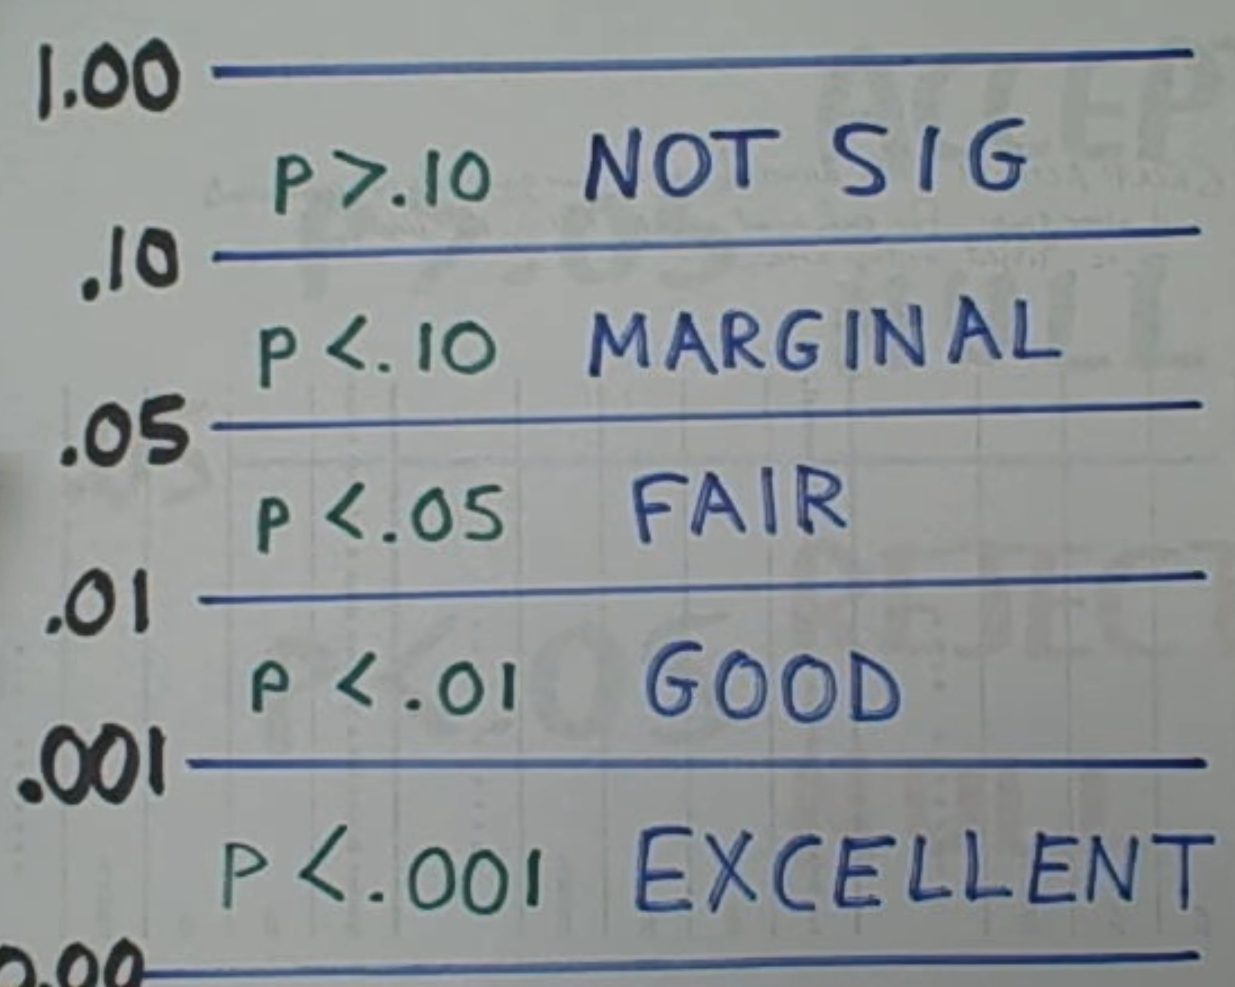 1.00
P >.10 NOT SIG
.10
P <.10 MARGINAL
.05
P <.05 FAIR
.01
P <.01 GOOD
.001
P <.001 EXCELLENT
0.00